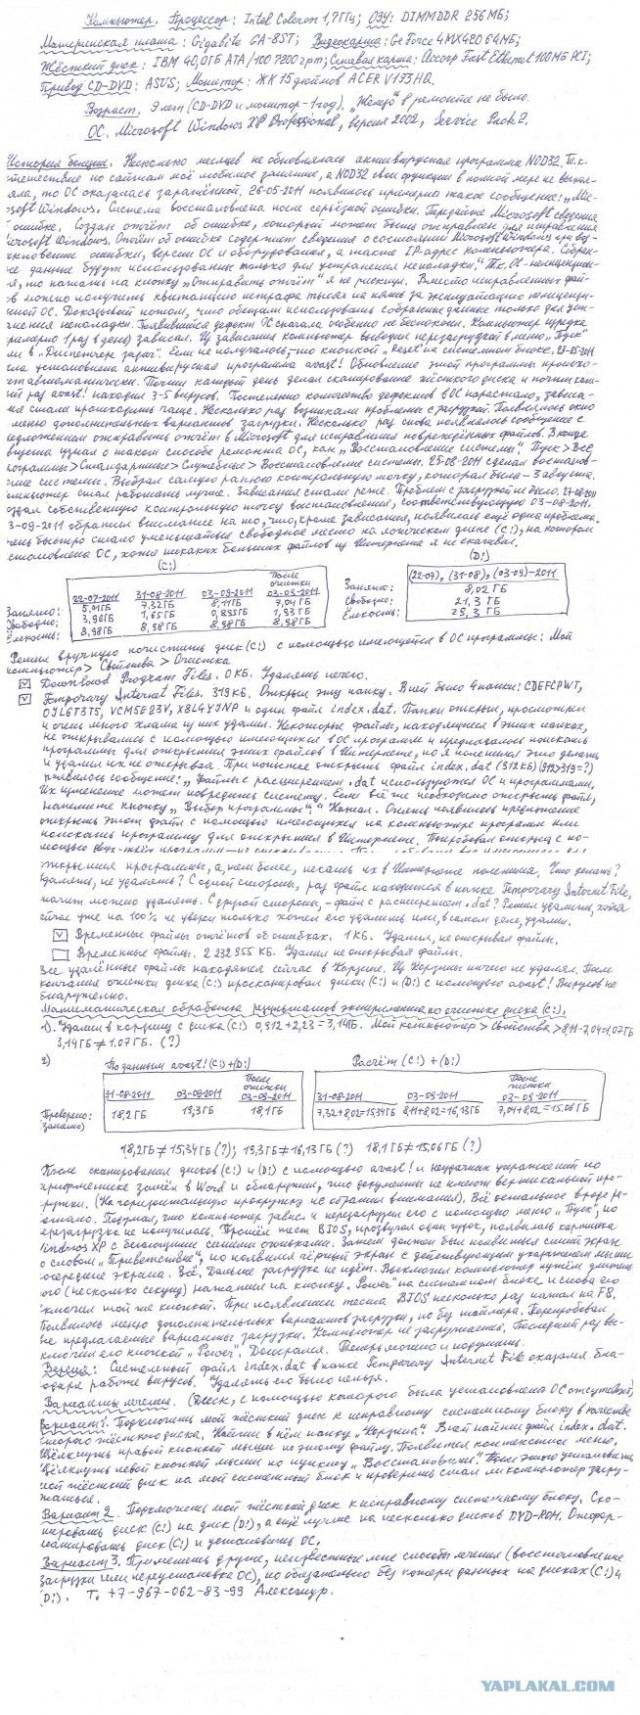 Компьютер. Процессор: Intel Celeron 1,7 ГГц; ОЗУ: DIMM DDR 256 МБ;
Материнская плата: Gigabite GA-8ST; Видеокарта: GeForce 4MX420 64МБ;
Жёсткий диск: IBM 40,0ГБ ATA/100 7200 rpm; Сетевая карта: Accorp Fast Ethernet 100МБ PCI;
Привод CD-DVD: ASUS; Монитор: ЖК 15 дюймов ACER V173HQ.
Возраст. 9 лет (CD-DVD и монитор - 1год). „Железо" в ремонте не было.
ОС. Microsoft Windows XP Professional, версия 2002, Service Pack 2.
История болезни. Несколько месяцев не обновлялась антивирусная программа NOD32. Т.к.
путешествие по сайтам моё любимое занятие, а NOD32 свои функции в полной мере не выпол-
няла, то ОС оказалась заражённой. 26-05-2011 появилось примерно такое сообщение: „Mic-
rosoft Windows. Система восстановлена после серьёзной ошибки. Передайте Microsoft сведения
ошибке. Создан отчёт об ошибке, который может быть отправлен для исправления
icrosoft Windows. Отчёт об ошибке содержит сведения о состоянии Microsoft Windows при воз-
никновении ошибки, версии ОС и оборудования, а также IP-адрес компьютера. Собран-
ые данные будут использованы только для устранения неполадки". Т.к. ОС - нелицензион-
я, то нажать на кнопку „Отправить отчёт" я не рискнул. Вместо исправленных фай-
в можно получить квитанцию штрафа тысяч на за эксплуатацию нелицензи-
нной ОС. Доказывай потом, что обещали использовать собранные данные только для уст-
нения неполадки. Появившийся дефект ОС сначала особенно не беспокоил. Компьютер изредка
примерно 1 раз в день) зависал. Из зависания компьютер выводил перезагрузкой в меню „Пуск"
ли в „Диспетчере задач". Если не получалось, - то кнопкой „Reset" на системном блоке.
ла установлена антивирусная программа avast! Обновление этой программы происхо-
автоматически. Почти каждый день делал сканирование жёсткого диска и почти каж-
ый раз avast! находил 3-5 вирусов. Постепенно количество дефектов в ОС нарастало, зависа-
ия стали происходить чаще. Несколько раз возникали проблемы с загрузкой. Появлялось окно
меню дополнительных вариантов загрузки. Несколько раз снова появлялось сообщение с
едложением отправить отчёт в Microsoft для исправления повреждённых файлов. В конце
узнал о таком способе ремонта ОС, как „Восстановление системы". Пуск > Все
рограммы > Стандартные > Служебные > Восстановление системы. 25-08-2011 сделал восстанов-
ние системы. Выбрал самую раннюю контрольную точку, которая была - 3 августа.
омпьютер стал работать лучше. Зависания стали реже. Проблем с загрузкой не было. 27-08-2011
создал собственную контрольную точку восстановления, соответствующую 03-08-2011.
3-09-2011 обратил внимание на то, что, кроме зависания, появилась ещё одна проблема.
чень быстро стало уменьшаться свободное место на логическом диске (C:), на котором
становлена ОС, хотя никаких больших файлов из Интернета я не скачивал.
(C:) (D:)
22-07-2011 31-08-2011 03-09-2011 После очистки 03-09-2011 (22-07), (31-08), (03-09)-2011
Занято: 5,01ГБ 7,32ГБ 8,11ГБ 7,04ГБ Занято: 8,02 ГБ
Свободно: 3,96ГБ 1,65ГБ 0,855ГБ 1,93ГБ Свободно: 21,3 ГБ
Ёмкость: 8,98ГБ 8,98ГБ 8,98ГБ 8,98ГБ Ёмкость: 29,3 ГБ
Решил вручную почистить диск (C:) с помощью имеющейся в ОС программы: Мой
компьютер > Свойства > Очистка
Download Program Files. 0 КБ. Удалять нечего.
Temporary Internet Files. 319 КБ. Открыл эту папку. В ней было 4 папки: CDEFCPWT,
OJL6T8T5, VCM5E23V, X8L4YJNP и один файл index.dat. Папки открыл, просмотрел
и очень много хлама из них удалил. Некоторые файлы, находящиеся в этих папках,
не открывались с помощью имеющихся в ОС программ и предлагалось поискать
программы для открытия этих файлов в Интернете, но я поленился это делать
и удалил их не открывая. При попытке открыть файл index.dat (912КБ) (912>319=?)
появилось сообщение: „Файлы с расширением .dat используются ОС и программами.
Их изменение может повредить систему. Если всё же необходимо открыть файл,
нажмите кнопку „Выбор программы"". Нажал. Опять появилось предложение
открыть этот файл с помощью имеющихся на компьютере программ или
поискать программу для открытия в Интернете. Попробовал открыть с по-
мощью
открытия программы, а, тем более, искать их в Интернете поленился. Что делать?
Удалять, не удалять? С одной стороны, раз файл находится в папке Temporary Internet File,
значит можно удалять. С другой стороны, - файл с расширением .dat? Решил удалить, хотя
сейчас уже на 100% не уверен только хотел его удалить или, в самом деле, удалил.
Временные файлы отчётов об ошибках. 1 КБ. Удалил, не открывая файлы.
Временные файлы. 2 232 955 КБ. Удалил не открывая файлы.
Все удалённые файлы находятся сейчас в Корзине. Из Корзины ничего не удалял. После
окончания очистки диска (C:) просканировал диски (C:) и (D:) с помощью avast! Вирусов не
бнаружено.
Математическая обработка результатов эксперимента по очистке диска (C:).
1). Удалил в корзину с диска (C:) 0,912+2,23=3,14ГБ. Мой компьютер > Свойства > 8,11-7,04=1,07ГБ
3,14ГБ ≠ 1,07ГБ. (?)
2) По данным avast! (C:)+(D:) Расчёт (C:)+(D:)
31-08-2011 03-09-2011 После очистки 03-09-2011 31-08-2011 03-09-2011 После чистки 03-09-2011
Проверено: (занято) 18,2ГБ 19,3ГБ 18,1ГБ 7,32+8,02=15,34ГБ 8,11+8,02=16,13ГБ 7,04+8,02=15,06ГБ
18,2ГБ ≠ 15,34ГБ (?); 19,3ГБ ≠ 16,13ГБ (?) 18,1ГБ ≠ 15,06ГБ (?)
После сканирования дисков (C:) и (D:) с помощью avast! и неудачных упражнений по
арифметике зашёл в Word и обнаружил, что документы не имеют вертикальной про-
рутки. (На горизонтальную прокрутку не обратил внимания). Всё остальное вроде ра-
отало. Подумал, что компьютер завис и перезагрузил его с помощью меню „Пуск", но
ерезагрузка не получилась. Прошёл тест BIOS, прозвучал один гудок, появилась картинка
Windows XP с бегающими синими огоньками. Затем должен был появиться синий экран
с словом „Приветствие", но появился чёрный экран с действующим указателем мыши
посередине экрана. Всё. Дальше загрузка не идёт. Выключил компьютер путём длитель-
ого (несколько секунд) нажатия на кнопку „Power" на системном блоке и снова его
ключил той же кнопкой. При появлении теста BIOS несколько раз нажал на F8.
Появилось меню дополнительных вариантов загрузки, но без таймера. Перепробовал
се предлагаемые варианты загрузки. Компьютер не загружается. Последний раз вы-
ключил его кнопкой „Power". Доигрался.
Версия: Системный файл index.dat в папке Temporary Internet File оказался бла-
одаря работе вирусов. Удалять его было нельзя.
Варианты лечения. (Диск, с помощью которого была установлена ОС отсутствует)
Вариант 1. Подключить мой жёсткий диск к исправному системному блоку в качестве
второго жёсткого диска. Найти в нём папку „Корзина". В ней найти файл index.dat.
Щёлкнуть правой кнопкой мыши по этому файлу. Появится контекстное меню.
Щёлкнуть левой кнопкой мыши по пункту „Восстановить". После этого установить
мой жёсткий диск на мой системный блок и проверить стал ли компьютер загру-
жаться.
Вариант 2. Подключить мой жёсткий диск к исправному системному блоку. Ско-
пировать диск (C:) на диск (D:), а ещё лучше на несколько дисков DVD-ROM. Отфор-
матировать диск (C:) и установить ОС.
Вариант 3. Применить другие, неизвестные мне способы лечения (восстановление
загрузки или переустановка ОС), но обязательно без потери данных на дисках (C:) и
D:). Т. +7-967-062-83-99 Александр.
YAPLAKAL.COM